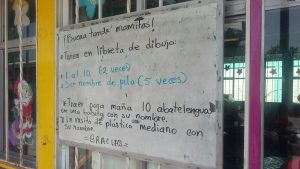 ¡Buena tarde mamitas!
• Tarea en libreta de dibujo:
• 1 al 10 (2 veces)
• Su nombre de pila (5 veces)
• Traer para mañana 10 abatelenguas
con su nombre.
• Un vasito de plástico mediano con
su nombre.
= GRACIAS =